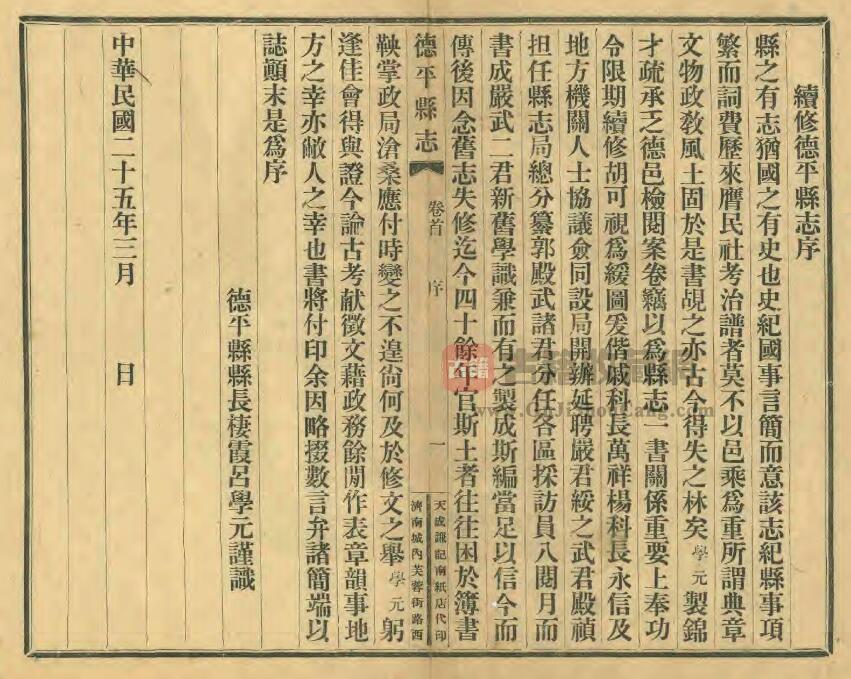 續修德平縣志序
縣之有志猶國之有史也史紀國事言簡而意該志紀縣事項
繁而詞費歷來膺民社考治譜者莫不以邑乘爲重所謂典章
文物政敎風土固於是書覘之亦古今得失之林矣學元製錦
才疏承乏德邑檢閱案卷竊以爲縣志一書關係重要上奉功
令限期續修胡可視爲緩圖爰偕戚科長萬祥楊科長永信及
地方機關人士協議僉同設局開辦延聘嚴君綏之武君殿禎
担任縣志局總分纂郭殿武諸君分任各區採訪員八閱月而
書成嚴武二君新舊學識兼而有之製成斯編當足以信今而
傳後因念舊志失修迄今四十餘年官斯土者往往困於簿書
德平縣志 卷首 序 一
天成謙記南紙店代印
濟南城內芙蓉街路西
鞅掌政局滄桑應付時變之不遑尙何及於修文之舉學元躬
逢佳會得與證今論古考献徵文藉政務餘閒作表章韻事地
方之幸亦敝人之幸也書將付印余因略掇數言弁諸簡端以
誌顚末是爲序
德平縣縣長棲霞呂學元謹識
中華民國二十五年三月 日
古籍
www.GuJiShouCang.com